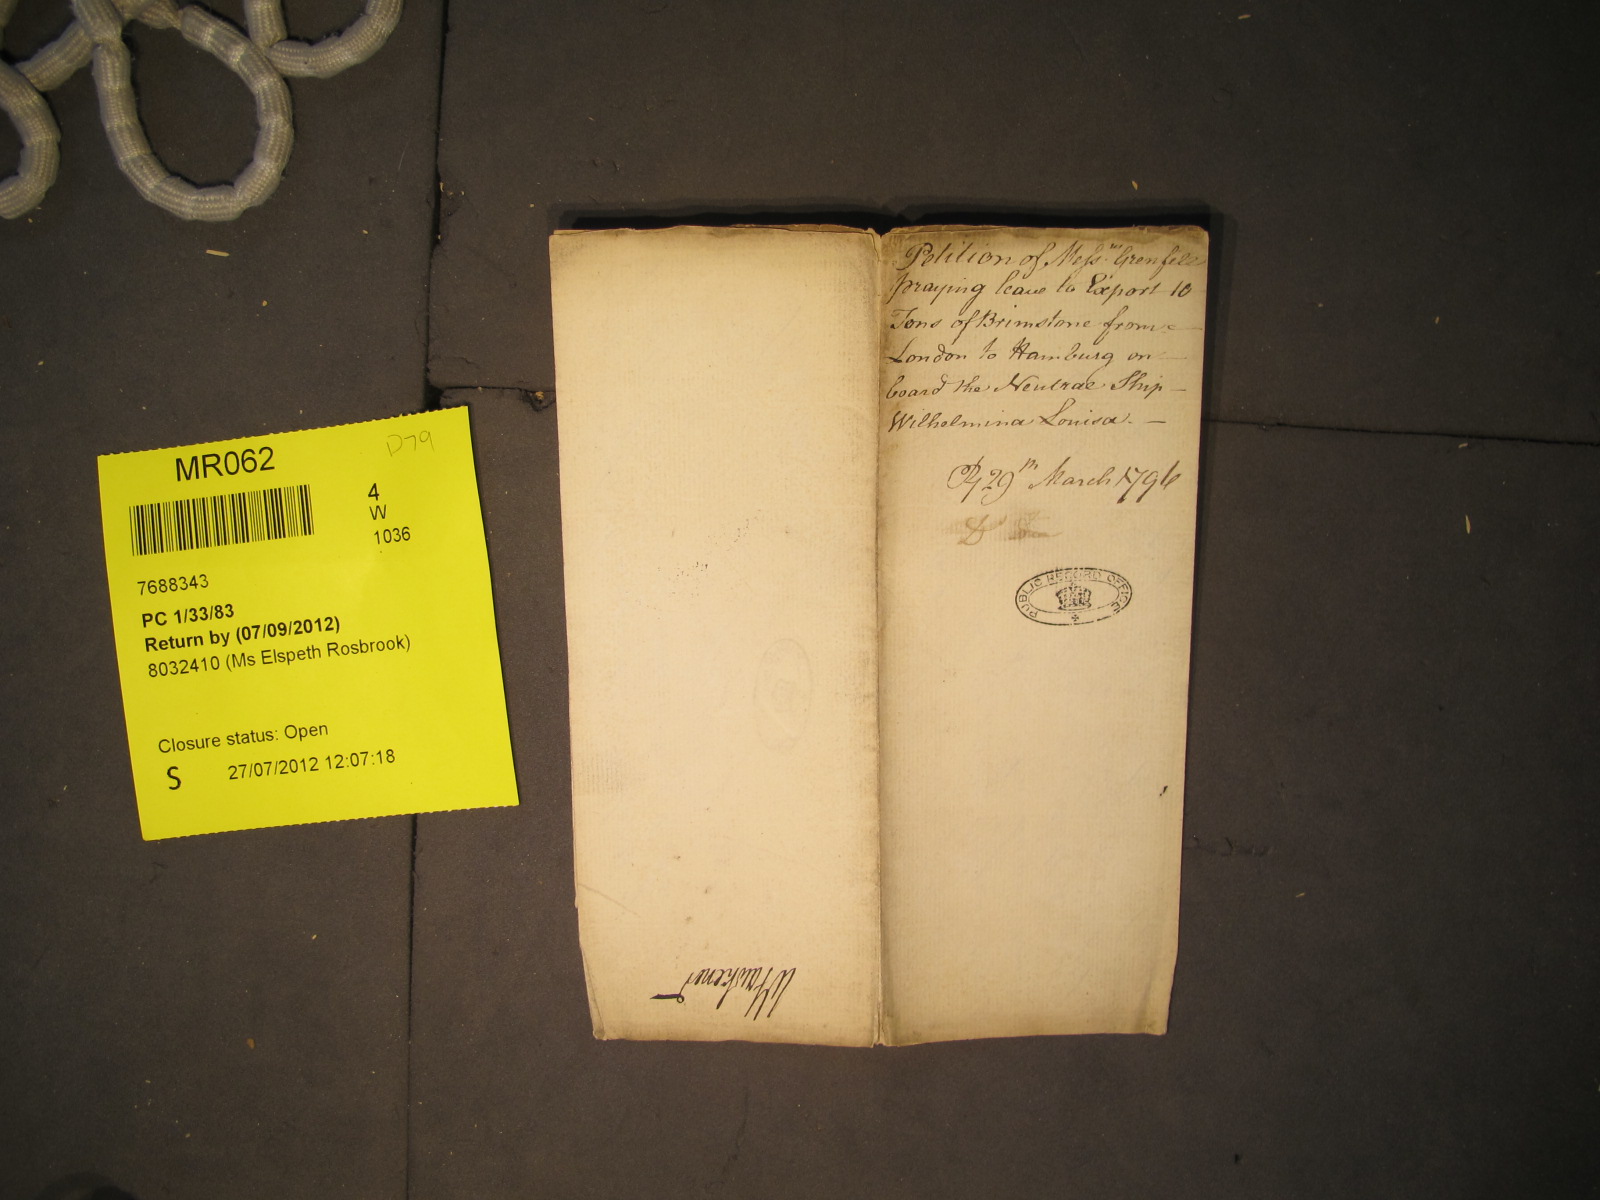 MR062
D79
4
W
1036
7688343
PC 1/33/83
Return by (07/09/2012)
8032410 (Ms Elspeth Rosbrook)
Closure status: Open
S 27/07/2012 12:07:18
Petition of Messrs Grenfell
praying leave to Export 10
Tons of Brimstone from
London to Hamburg on
board the Neutral Ship
Wilhelmina Louisa. —
29th March 1796
PUBLIC RECORD OFFICE
WFawkener